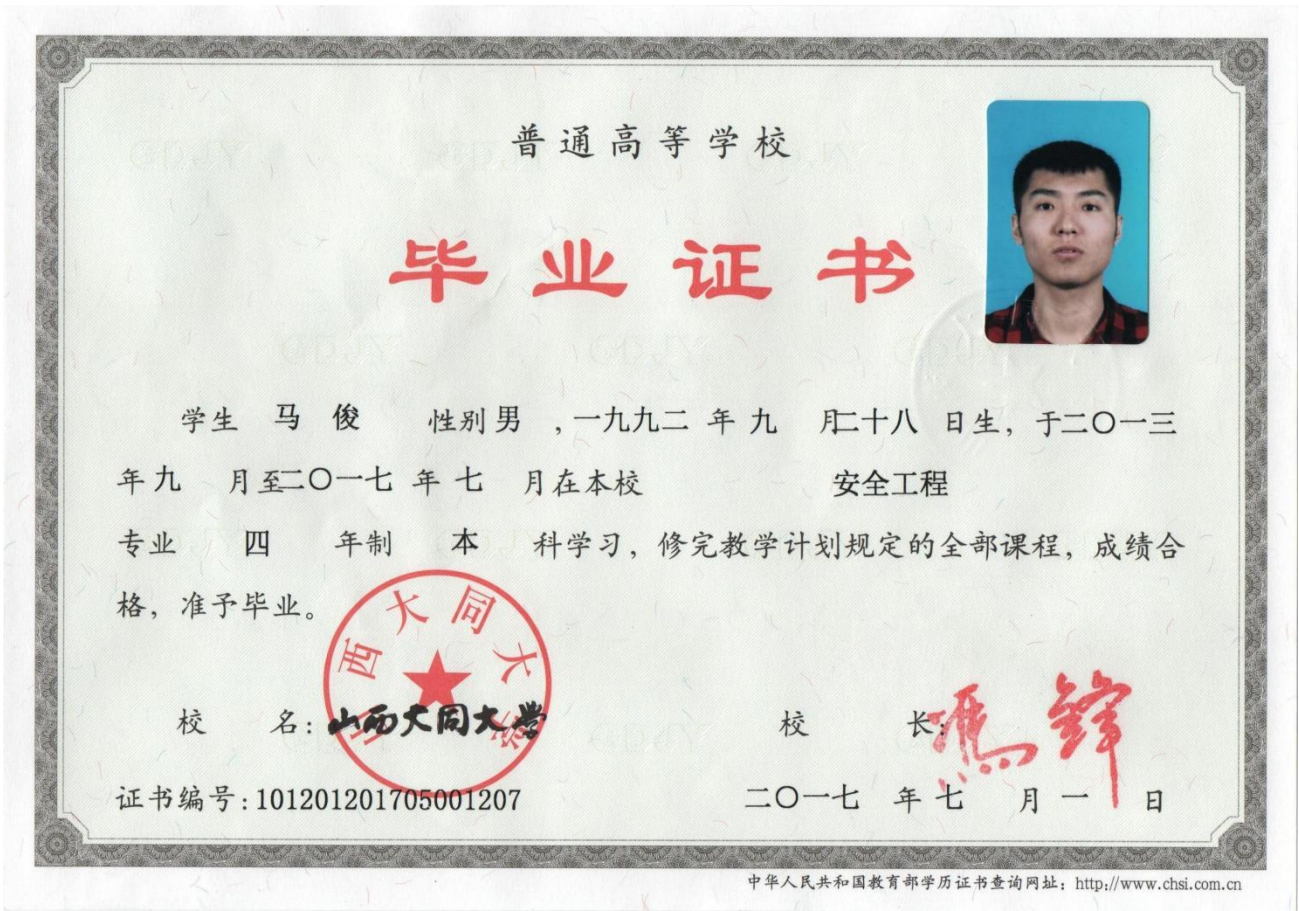 普通高等学校
毕业证书
学生 马 俊 性别 男 ,一九九二 年 九 月二十八 日生，于二〇一三
年 九 月至二〇一七 年 七 月在本校 安全工程
专业 四 年制 本 科学习，修完教学计划规定的全部课程，成绩合
格，准予毕业。
山西大同大学
校 名：山西大同大学
校 长：馮鋒
证书编号:101201201705001207
二〇一七 年 七 月 一 日
中华人民共和国教育部学历证书查询网址：http://www.chsi.com.cn